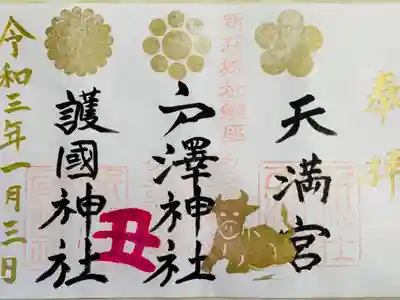 奉拝
天満宮
新庄城址鎮座
戸澤神社
丑
護國神社
令和三年一月三日